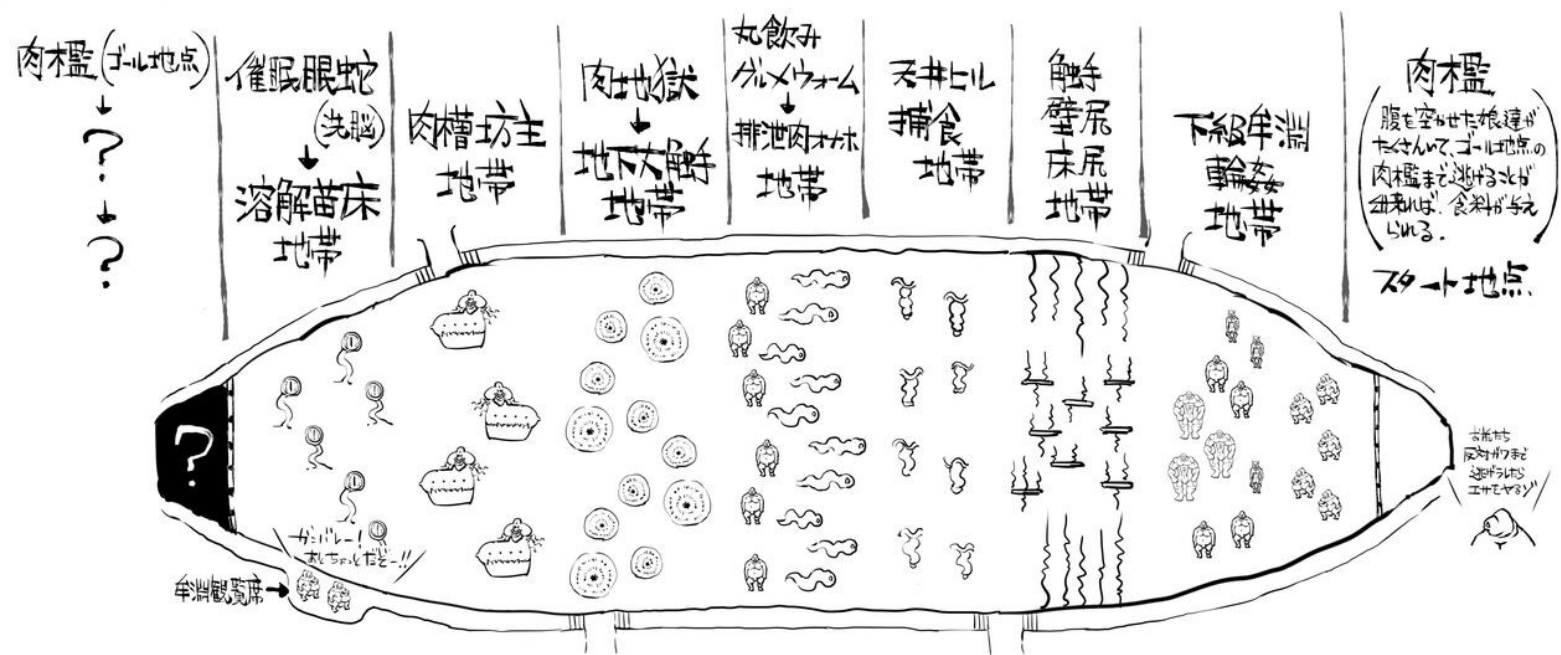 肉檻(ゴール地点)
↓
?
↓
?
催眠眼蛇
(洗脳)
↓
溶解苗床
地帯
肉槽坊主
地帯
肉地獄
↓
地下大触手
地帯
丸飲み
グルメウォーム
↓
排泄肉オナホ
地帯
天井ヒル
捕食
地帯
触手
壁尻
床尻
地帯
下級牟淵
輪姦
地帯
肉檻
(腹を空かせた娘達が
たくさんいて、ゴール地点の
肉檻まで逃げることが
出来れば、食料が与え
られる。)
スタート地点
?
ガンバレー!
あとちょっとだぞー!!
牟淵観覧席→
お前たち
反対がわまで
逃げきれたら
エサをヤるゾ